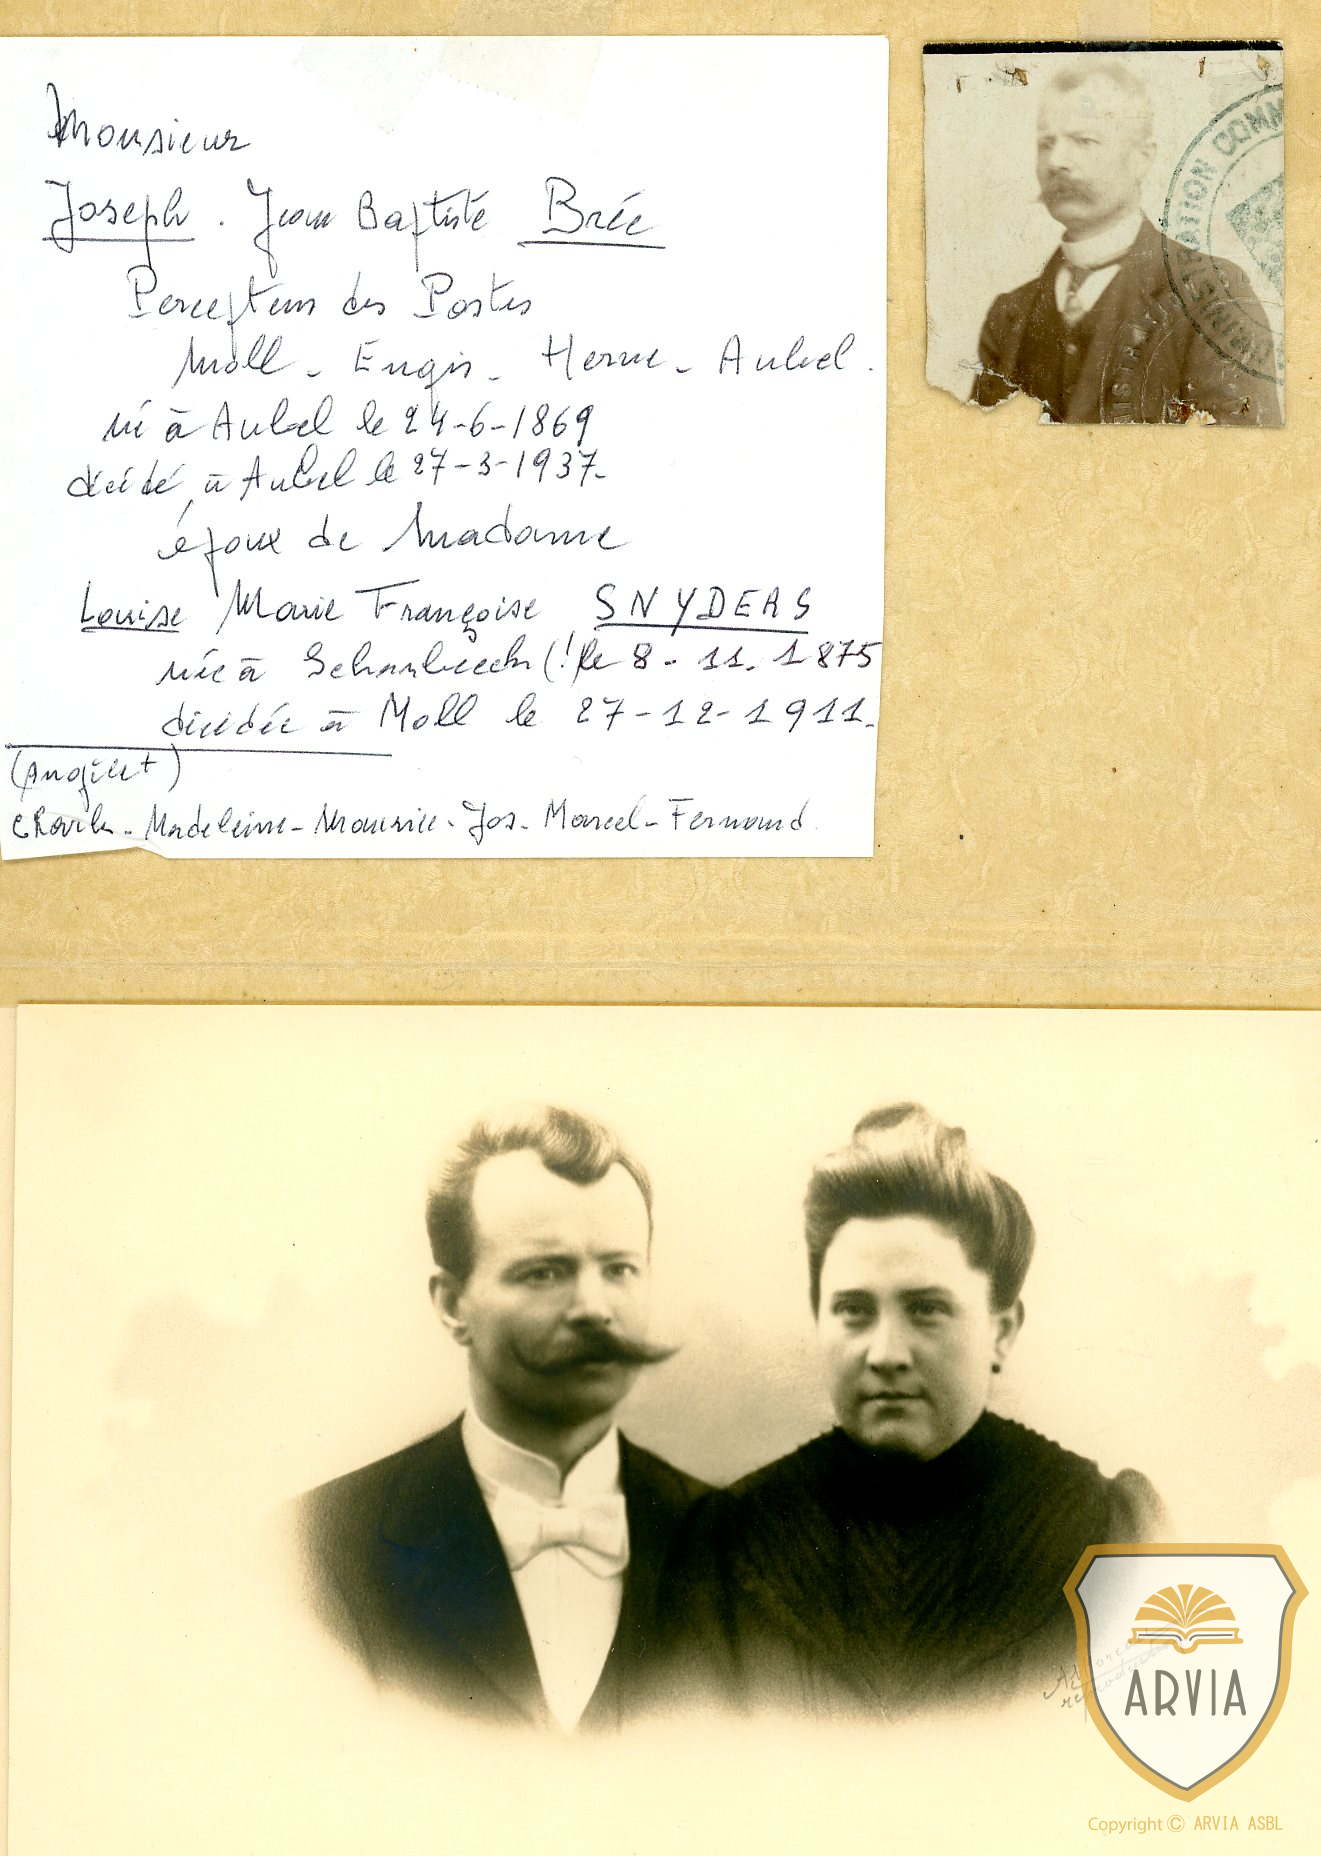 Monsieur
Joseph . Jean Baptiste Brée
Percepteur des Postes
Moll - Engis - Herve - Aubel .
né à Aubel le 24-6-1869
décédé à Aubel le 27-3-1937.
époux de Madame
Louise Marie Françoise SNYDERS
née à Schaerbeek (! le 8 - 11. 1875
décédée à Moll le 27-12-1911.
Charles - Madeleine - Maurice - Jos - Marcel - Fernand
ADMINISTRATION COMM
ARVIA
Copyright © ARVIA ASBL